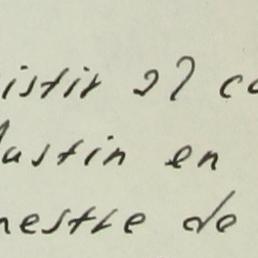 istir al co
ustin en
nestre de